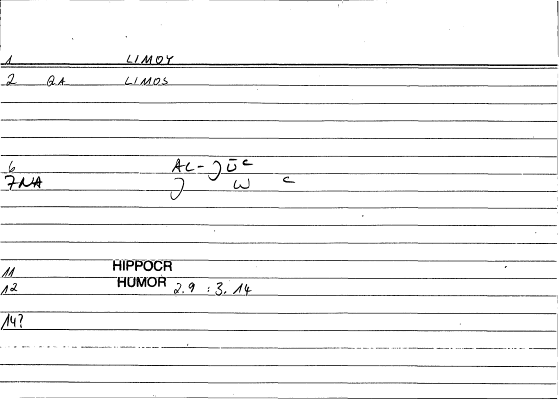 1 LIMOY
2 QA LIMOS
6 AL-JŪC
7 NA J W C
11 HIPPOCR
12 HUMOR 2.9 : 3.14
14?